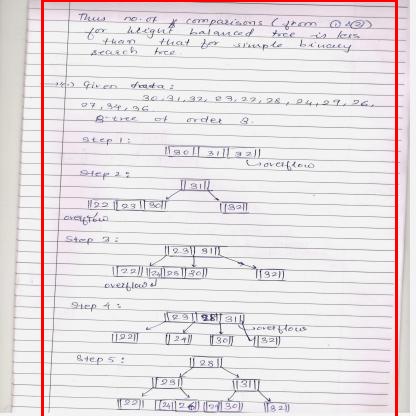 Thus no. of comparisons (from ① & ②)
for height balanced tree is less
than that for simple binary
search tree.
Given data:
30, 31, 32, 23, 22, 28, 24, 29, 26,
27, 34, 36
B-tree of order 3.
Step 1:
30 31 32
overflow
Step 2:
31
22 23 30 32
overflow
Step 3:
23 31
22 24 28 30 32
overflow
Step 4:
23 28 31
overflow
22 24 30 32
Step 5:
28
23 31
22 24 26 29 30 32